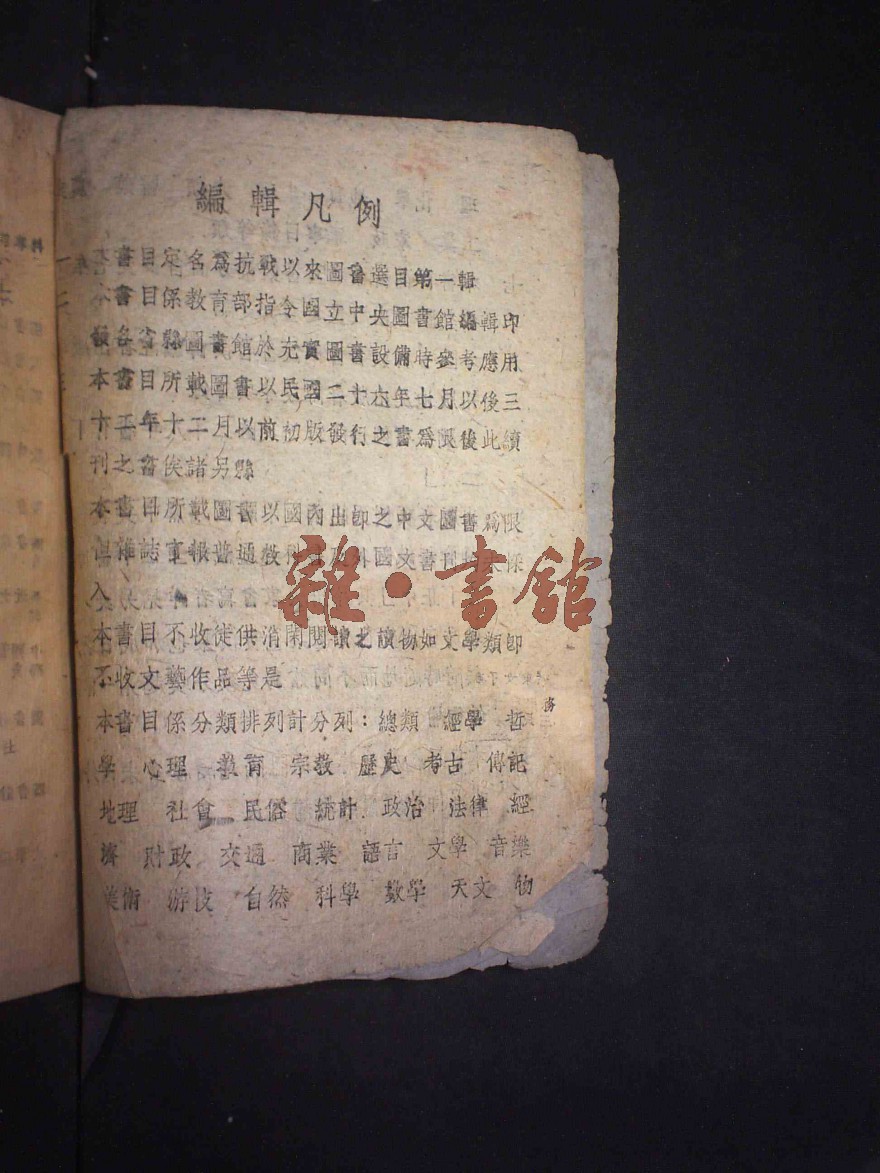 編輯凡例
一 本書目定名為抗戰以來圖書選目第一輯
二 本書目係教育部指令國立中央圖書館編輯印
發各省縣圖書館於充實圖書設備時參考應用
本書目所載圖書以民國二十六年七月以後三
十三年十二月以前初版發行之書為限後此續
刊之書俟諸另縣
本書目所載圖書以國內出卽之中文圖書為限
但雜誌 報普通教科 及外國文書刊
入
本書目不收徒供消閑閱讀之讀物如文學類卽
不收文藝作品等是
本書目係分類排列計分列：總類 經學 哲
學 心理 教育 宗教 歷史 考古 傳記
地理 社會 民俗 統計 政治 法律 經
濟 財政 交通 商業 語言 文學 音樂
美術 游技 自然 科學 數學 天文 物
雜·書館